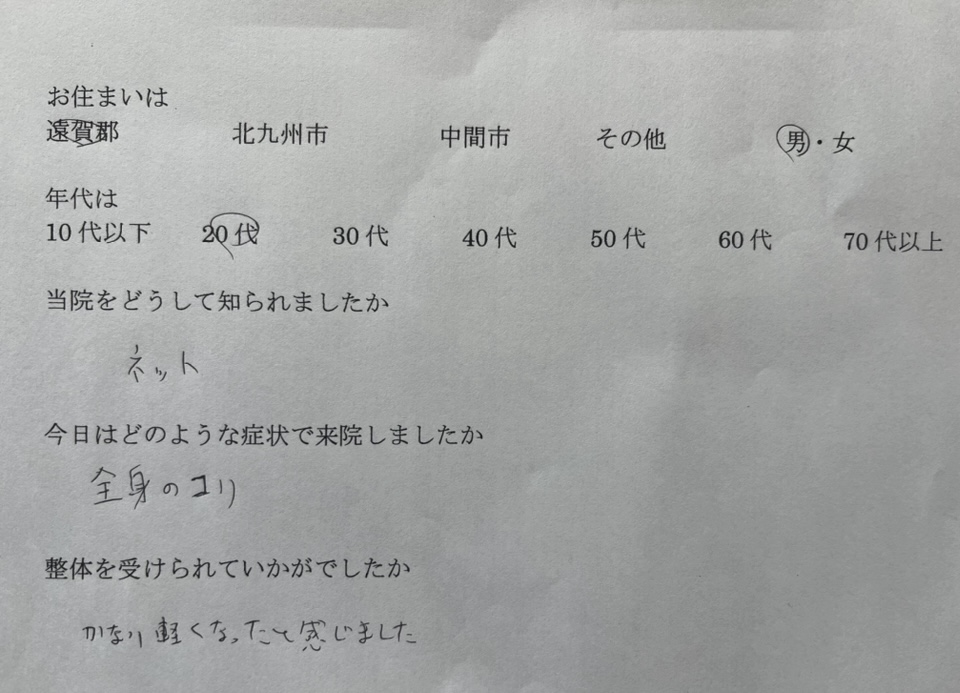 お住まいは
遠賀郡 北九州市 中間市 その他 男・女
年代は
10代以下 20代 30代 40代 50代 60代 70代以上
当院をどうして知られましたか
ネット
今日はどのような症状で来院しましたか
全身のコリ
整体を受けられていかがでしたか
かなり軽くなったと感じました